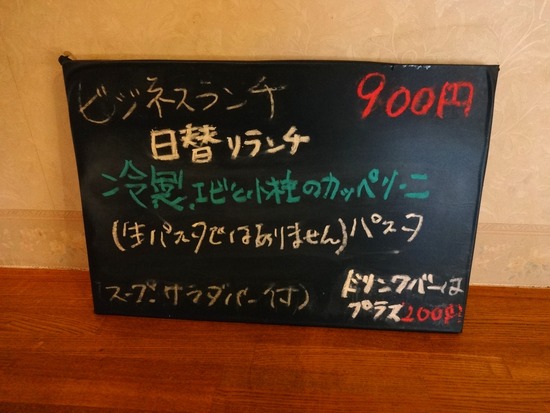 ビジネスランチ 900円
日替りランチ
冷製、エビと小柱のカッペリーニ
(生パスタではありません)パスタ
(スープ、サラダバー付)
ドリンクバーは
プラス200円